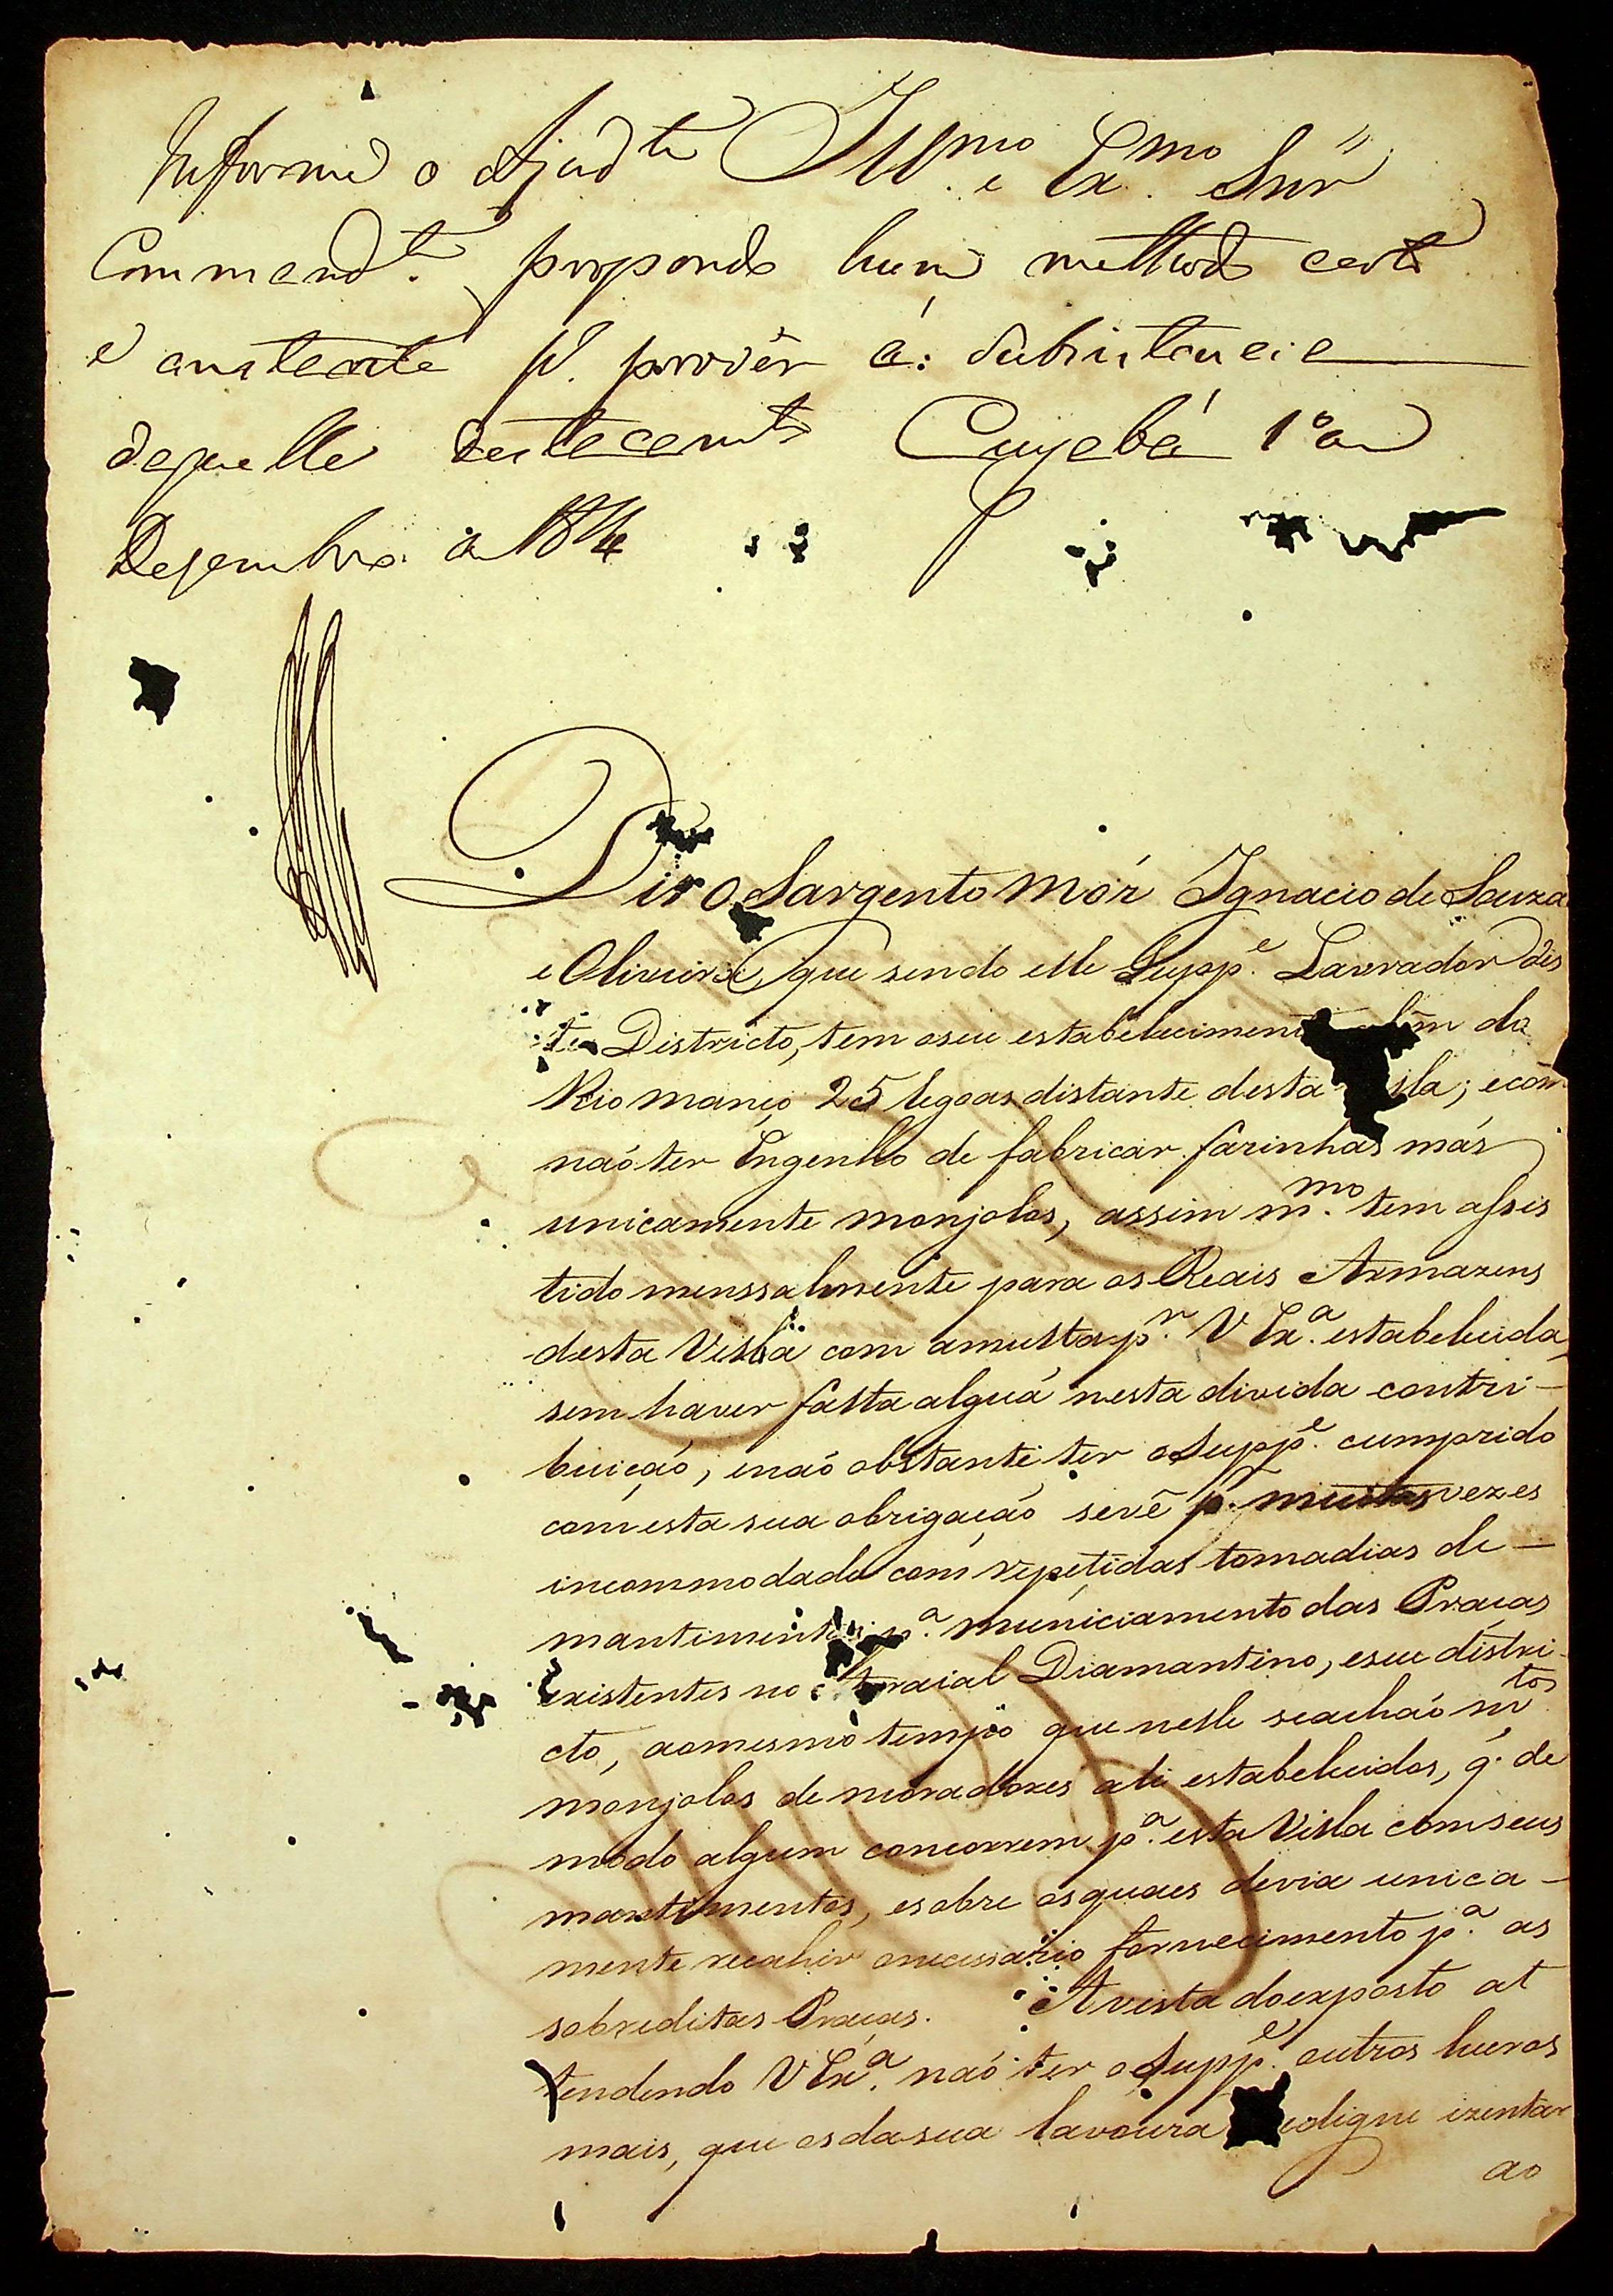 Informe o Ajud.te Ill.mo e Ex.mo Snr
Command.te propondo hum methodo certo
e constante p.a provêr á subsistencia
daquelle destacamto Cuyabá 1º de
Dezembro de 1814
Diz o Sargento Mór Ignacio de Souza
e Oliveira que sendo elle Supp.e Lavrador des
te Districto, tem oseu estabeleciment alem do
Rio manço 25 legoas distante desta illa; ecom
naó ter Engenho de fabricar farinhas más
unicamente monjolos, assim m.mo tem assis
tido menssalmente para os Reais Armazens
desta Villa com amulta p.r V Ex.a estabelecida,
sem haver falta alguá nesta divida contri-
buiçaó, enaó obstante ter oSupp.e cumprido
com esta sua obrigaçaó sevê p.r muitas vezes
incommodado com repetidas tomadias de
mantiment p.a municiamento das Praças
existentes no Arraial Diamantino, eseu distri
cto, aomesmo tempo que nelle seachaó m.tos
monjolos de moradores ali estabelecidos, q. de
modo algum concorrem p.a esta Villa comseus
mantimentos, esobre osquaes devia unica-
mente recahir onecessario fornecimento p.a as
sobreditas Praças. Avista doexposto at
tendendo V Ex.a naó ter oSupp.e outros lucros
mais, que osdasua lavoura sedigne izentar
ao